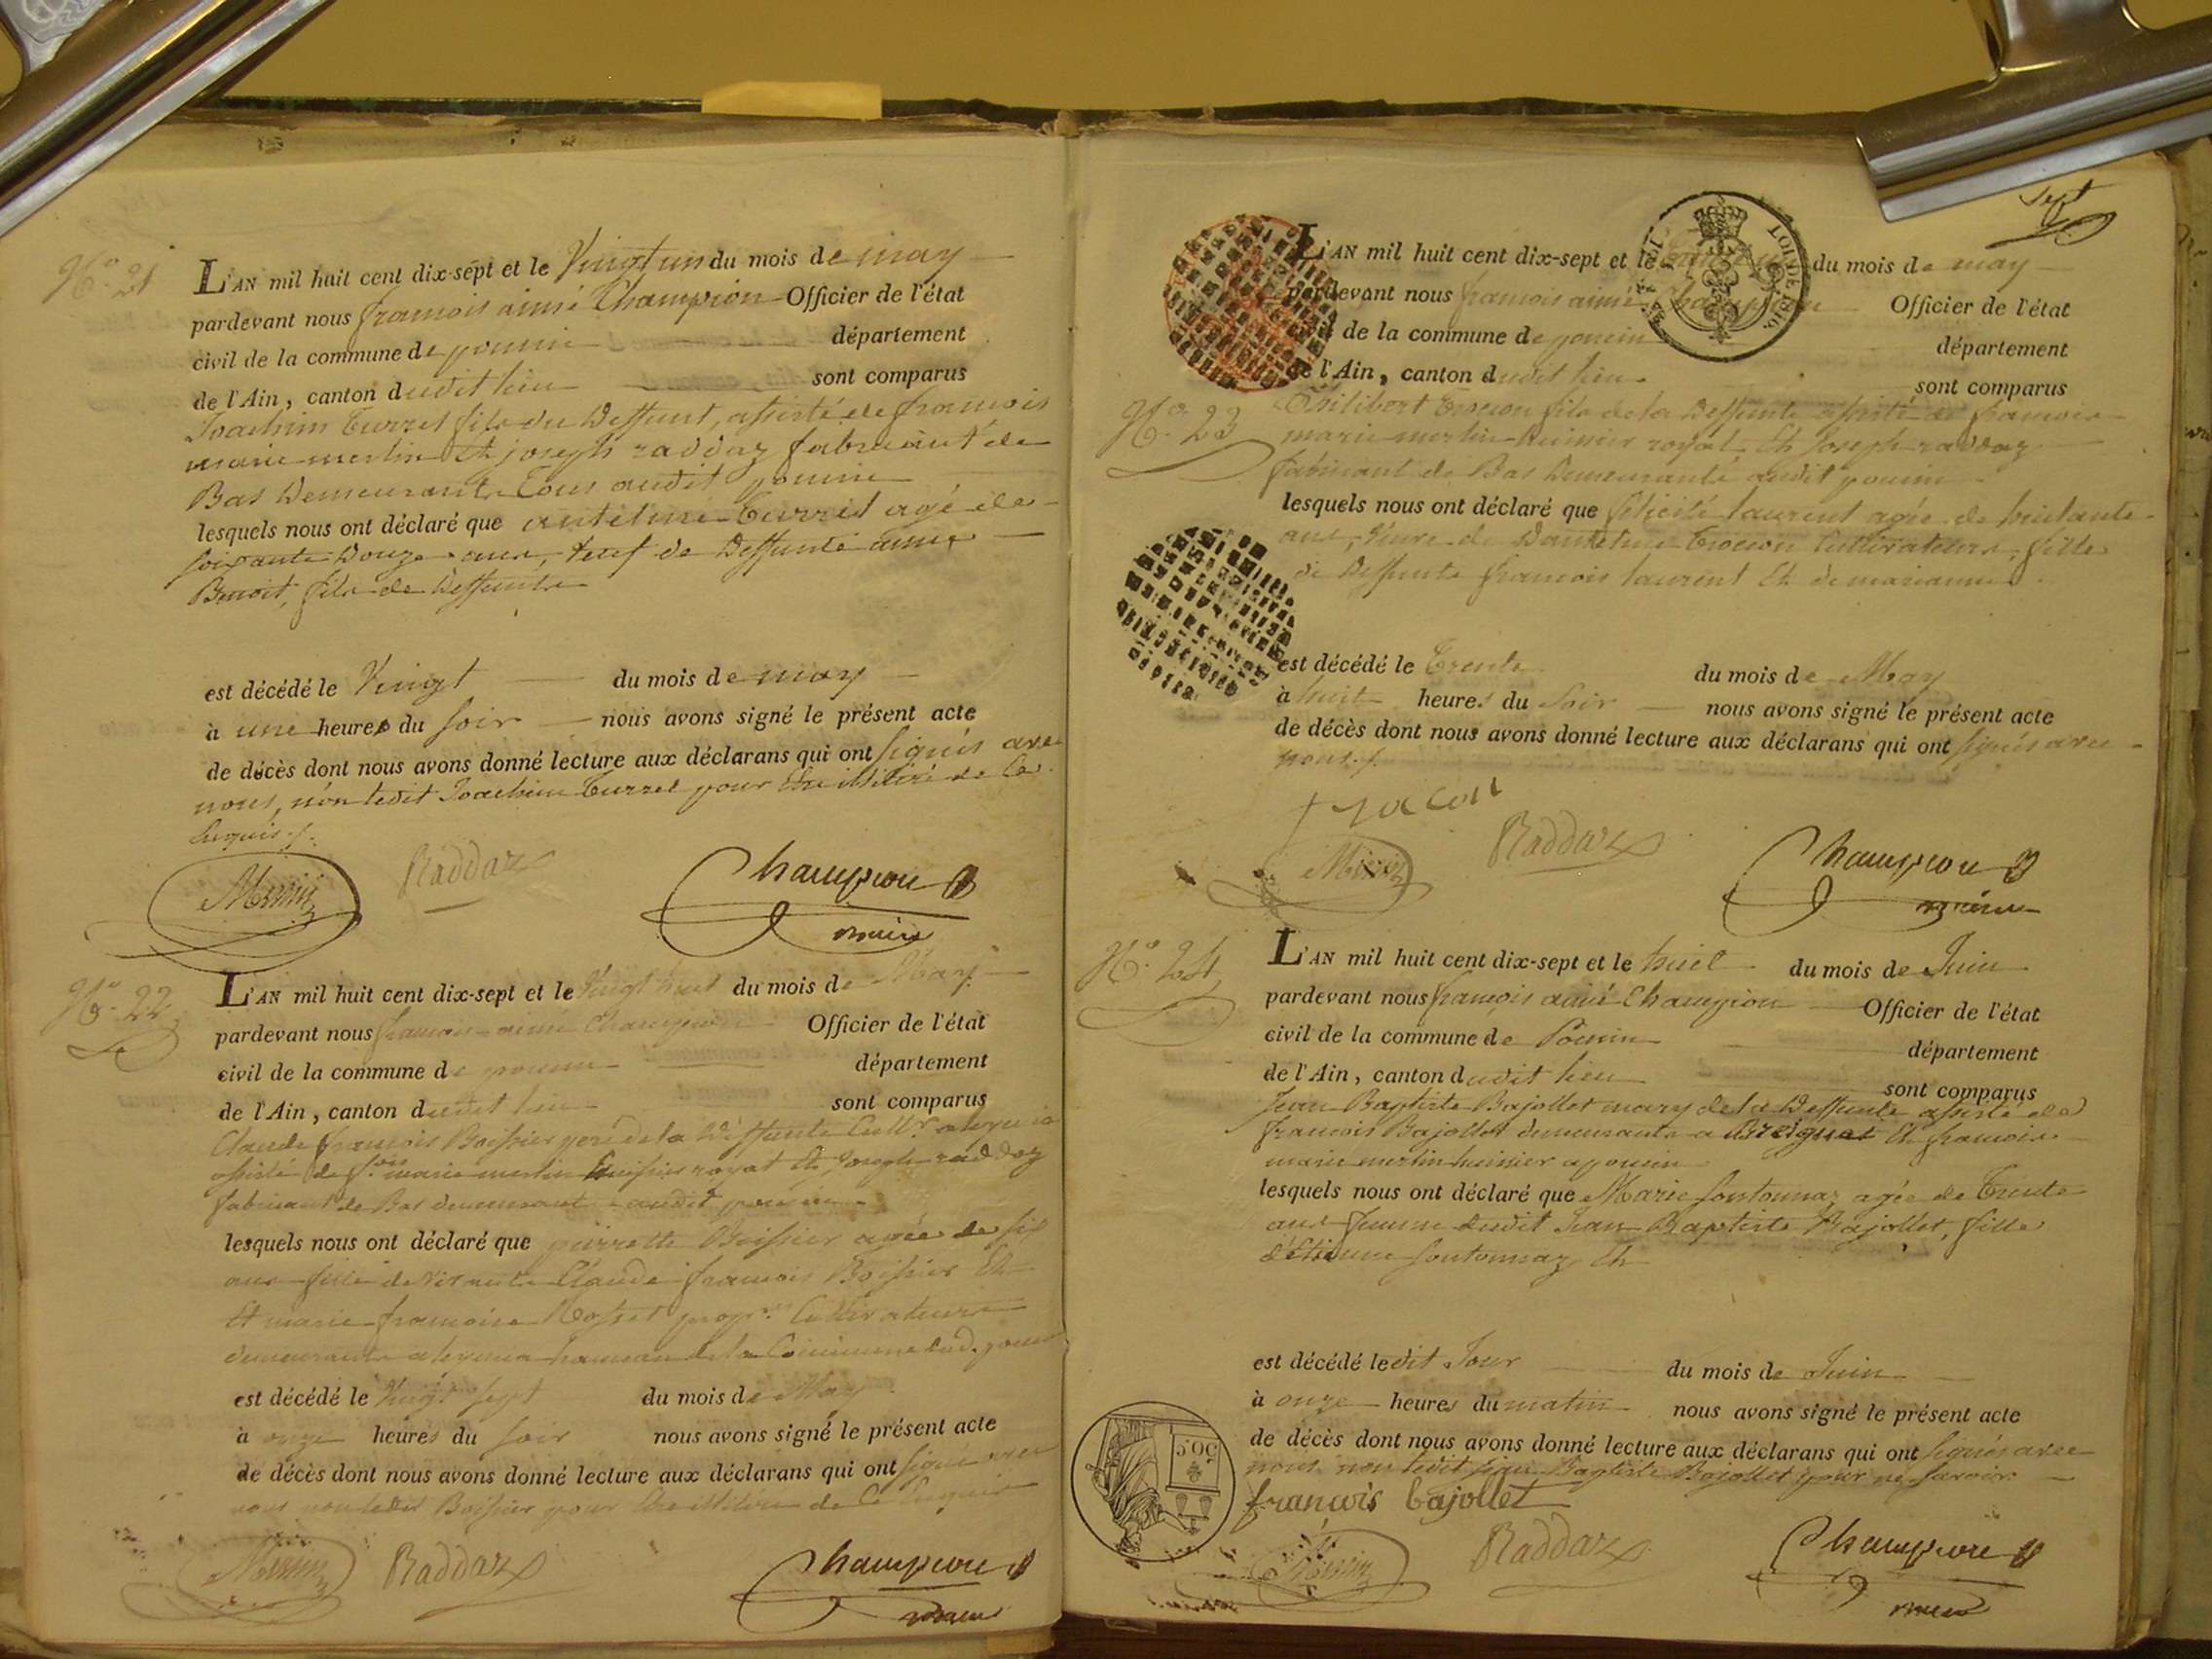 N.º 21
L'AN mil huit cent dix-sept et le Vingt un du mois de may
pardevant nous françois aimé Champion Officier de l'état
civil de la commune de poncin département
de l'Ain, canton dudit lieu sont comparus
Joachim Turrel fils du Deffunt, assisté de françois
marie merlin Et joseph raddaz fabricant de
Bas Demeurants Tous audit poncin
lesquels nous ont déclaré que antelme Turrel agé de
soixante Douze ans, veuf de Deffunte anne
Benoit, fils de Deffunts
est décédé le Vingt du mois de may
à une heures du soir nous avons signé le présent acte
de décès dont nous avons donné lecture aux déclarans qui ont signés avec
nous, non ledit Joachim Turrel pour Etre illitéré de Ce
Enquis
Merlin Raddaz Champion
maire
N.º 22
L'AN mil huit cent dix-sept et le Vingt huit du mois de May
pardevant nous françois aimé Champion Officier de l'état
civil de la commune de poncin département
de l'Ain, canton dudit lieu sont comparus
Claude françois Boissier pere de la Deffunte Cult.r
assisté de f.ois marie merlin huissier royal Et Joseph raddaz
fabricant de Bas demeurant audit poncin
lesquels nous ont déclaré que pierrette Boissier agée de six
ans fille de Claude françois Boissier Et
Et marie françoise Cultivateurs
demeurants hameau de la Commune dud. poncin
est décédé le Vingt sept du mois de May
à onze heures du soir nous avons signé le présent acte
de décès dont nous avons donné lecture aux déclarans qui ont signé avec
nous non ledit Boissier pour Etre illitéré de Ce Enquis
Merlin Raddaz Champion
maire
sept
L'AN mil huit cent dix-sept et le du mois de may
pardevant nous françois aimé Champion Officier de l'état
civil de la commune de poncin département
de l'Ain, canton dudit lieu sont comparus
N.º 23
Philibert fils de la Deffunte assisté de françois
marie merlin huissier royal Et Joseph raddaz
fabricant de Bas Demeurants audit poncin
lesquels nous ont déclaré que félicité laurent agée de
ans, Veuve de Cultivateur, fille
de Deffunts françois laurent Et de marianne
est décédé le Trente du mois de May
à huit heures du soir nous avons signé le présent acte
de décès dont nous avons donné lecture aux déclarans qui ont signés avec
nous
Merlin Raddaz Champion
maire
N.º 24
L'AN mil huit cent dix-sept et le huit du mois de Juin
pardevant nous françois aimé Champion Officier de l'état
civil de la commune de Poncin département
de l'Ain, canton dudit lieu sont comparus
Jean Baptiste Bajollet mary de la Deffunte assisté de
françois Bajollet demeurants a Et françois
marie merlin huissier a poncin
lesquels nous ont déclaré que Marie fontonnaz agée de Trente
ans femme dudit Jean Baptiste Bajollet, fille
d'Etienne fontonnaz, Et
est décédé ledit Jour du mois de Juin
à onze heures du matin nous avons signé le présent acte
de décès dont nous avons donné lecture aux déclarans qui ont signés avec
nous non ledit Jean Baptiste Bajollet pour ne savoir
50.c
françois bajollet
Merlin Raddaz Champion
maire